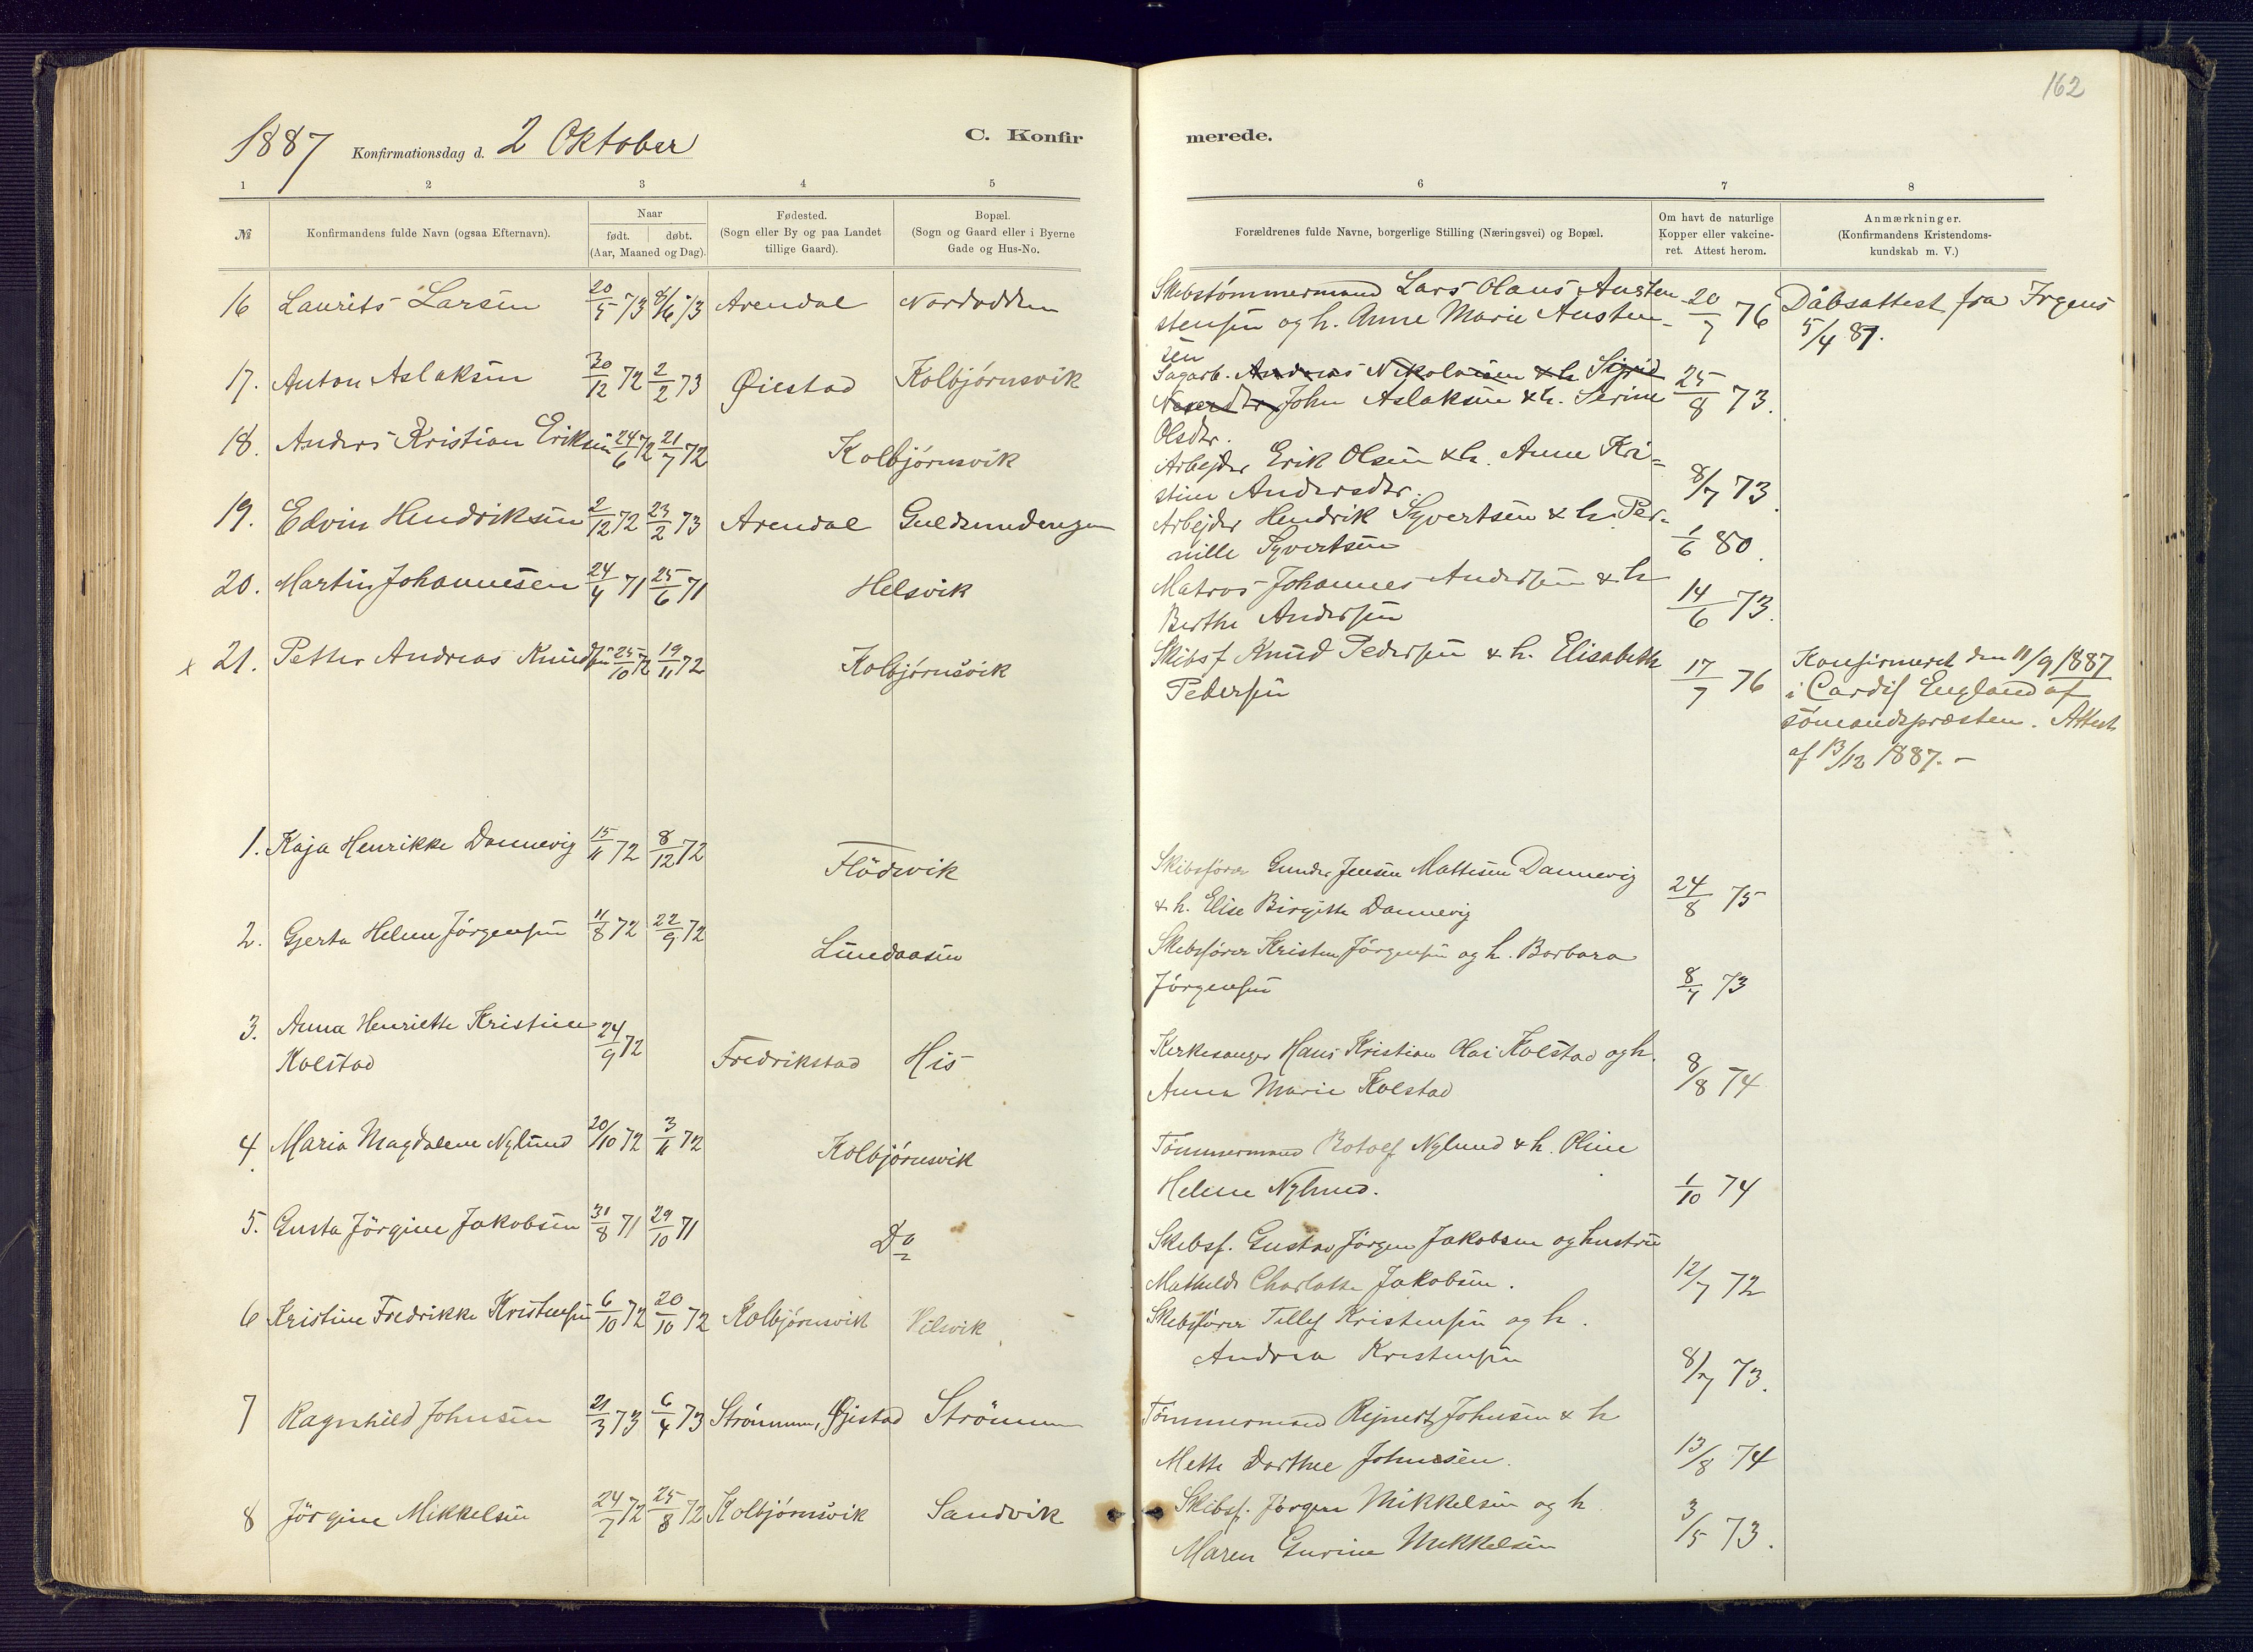 162
1887 Konfirmationsdag d. 2 Oktober C. Konfir merede.
1 2 3 4 5 6 7 8
№
Konfirmandens fulde Navn (ogsaa Efternavn).
Naar
født. døbt.
(Aar, Maaned og Dag).
Fødested.
(Sogn eller By og paa Landet
tillige Gaard).
Bopæl.
(Sogn og Gaard eller i Byerne
Gade og Hus-No.
Forældrenes fulde Navne, borgerlige Stilling (Næringsvei) og Bopæl.
Om havt de naturlige
Kopper eller vakcine-
ret. Attest herom.
Anmærkninger.
(Konfirmandens Kristendoms-
kundskab m. V.)
16 Laurits Larsen 20/5 73 8/6 73 Arendal Nordodden
Skibstömmermand Lars Olaus Austen
stensen og h. Anne Marie Austen-
sen
20/7 76
Dåbsattest fra Irgens
5/4 87.
17. Anton Aslaksen 30/12 72 2/2 73 Øiestad Kolbjørnsvik
Sagarb. Andreas Nikolaisen & h. Sigrid
John Aslaksen & h. Serine
Olsdtr.
25/8 73.
18. Anders Kristian Eriksen 24/6 72 21/7 72 Kolbjørnsvik
Arbejder Erik Olsen & h. Anne Kri=
stine Andersdtr.
8/7 73
19. Edvin Hendriksen 2/12 72 23/2 73 Arendal Guldsmedengen
Arbejder Hendrik Syvertsen & h. Per-
nille Syvertsen
1/6 80.
20. Martin Johannesen 24/4 71 25/6 71 Helsvik
Matros Johannes Andersen & h
Berthe Andersen
14/6 73.
x 21. Petter Andreas Knudsen 25/10 72 19/11 72 Kolbjørnsvik
Skibsf Knud Pedersen & h. Elisabeth
Pedersen
17/7 76
Konfirmeret den 11/9 1887
i Cardif England af
sömandspræsten. Attest
af 13/12 1887. -
1. Kaja Henrikke Dannevig 15/11 72 8/12 72 Flödevik
Skibsfører Gunder Jensen Mattisen Dannevig
& h. Elise Birgitte Dannevig
24/8 75
2. Gjerta Helene Jörgensen 11/8 72 22/9 72 Lundaasen
Skibsfører Kristen Jörgensen og h. Barbara
Jörgensen
8/7 73
3. Anna Henriette Kristine
Kolstad
24/9 72 Fredrikstad His
Kirkesanger Hans Kristian Olai Kolstad og h.
Anna Marie Kolstad
8/8 74
4. Maria Magdalene Nylund 20/10 72 3/11 72 Kolbjørnsvik
Tömmermand Botolf Nylund & h. Oline
Helene Nylund.
1/10 74
5. Gusta Jörgine Jakobsen 31/8 71 29/10 71 Do
Skibsf. Gustav Jörgen Jakobsen og hustru
Mathilde Charlotte Jakobsen.
12/7 72
6 Kristine Fredrikke Kristensen 6/10 72 20/10 72 Kolbjørnsvik Vilsvik
Skibsfører Tellef Kristensen og h.
Andrea Kristensen
8/7 73.
7 Ragnhild Johnsen 21/3 73 6/4 73 Strömmen, Øjestad Strömmen
Tömmermand Rejnert Johnsen & h
Mette Dorthee Johnsen.
13/8 74
8 Jörgine Mikkelsen 24/7 72 25/8 72 Kolbjørnsvik Sandvik
Skibsf. Jörgen Mikkelsen og h
Maren Gurine Mikkelsen
3/5 73.